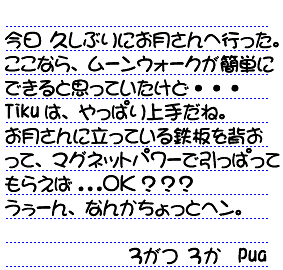 今日 久しぶりにお月さんへ行った。
ここなら、ムーンウォークが簡単に
できると思っていたけど・・・
Tikuは、やっぱり上手だね。
お月さんに立っている鉄板を背お
って、マグネットパワーで引っぱって
もらえば ...OK？？？
うぅーん、なんかちょっとヘン。
3がつ 3か Pua